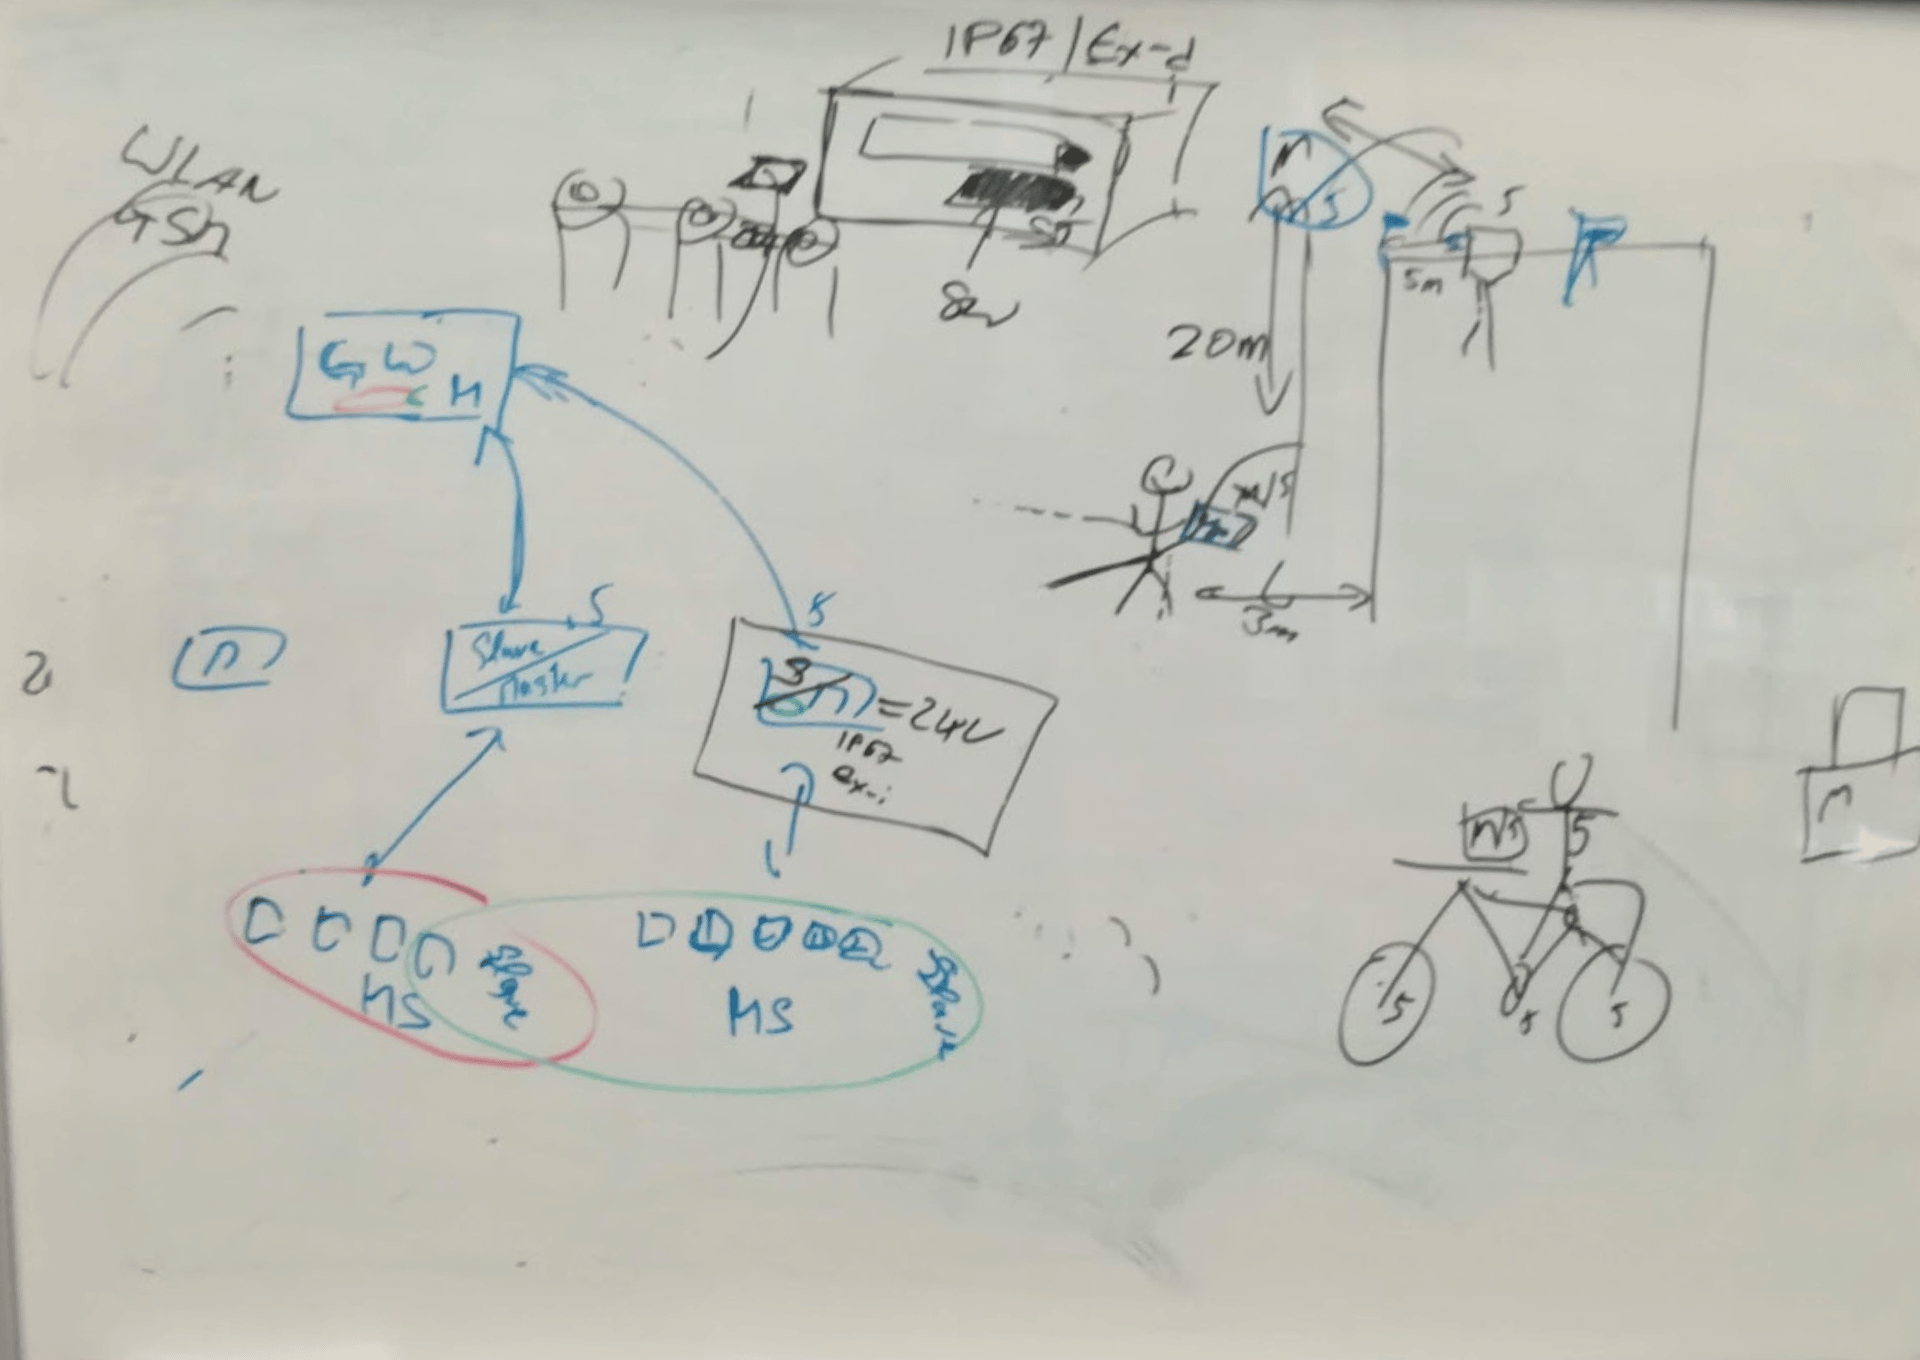 IP67/Ex-d
WLAN
GSM
M
S
S
5m
20m
GW
M
M/S
3m
S
Slave
Master
S
S
M
=24V
IP67
ex-i
2
M
1
M
M/S
S
Slave
MS
Slave
MS
S
S
S